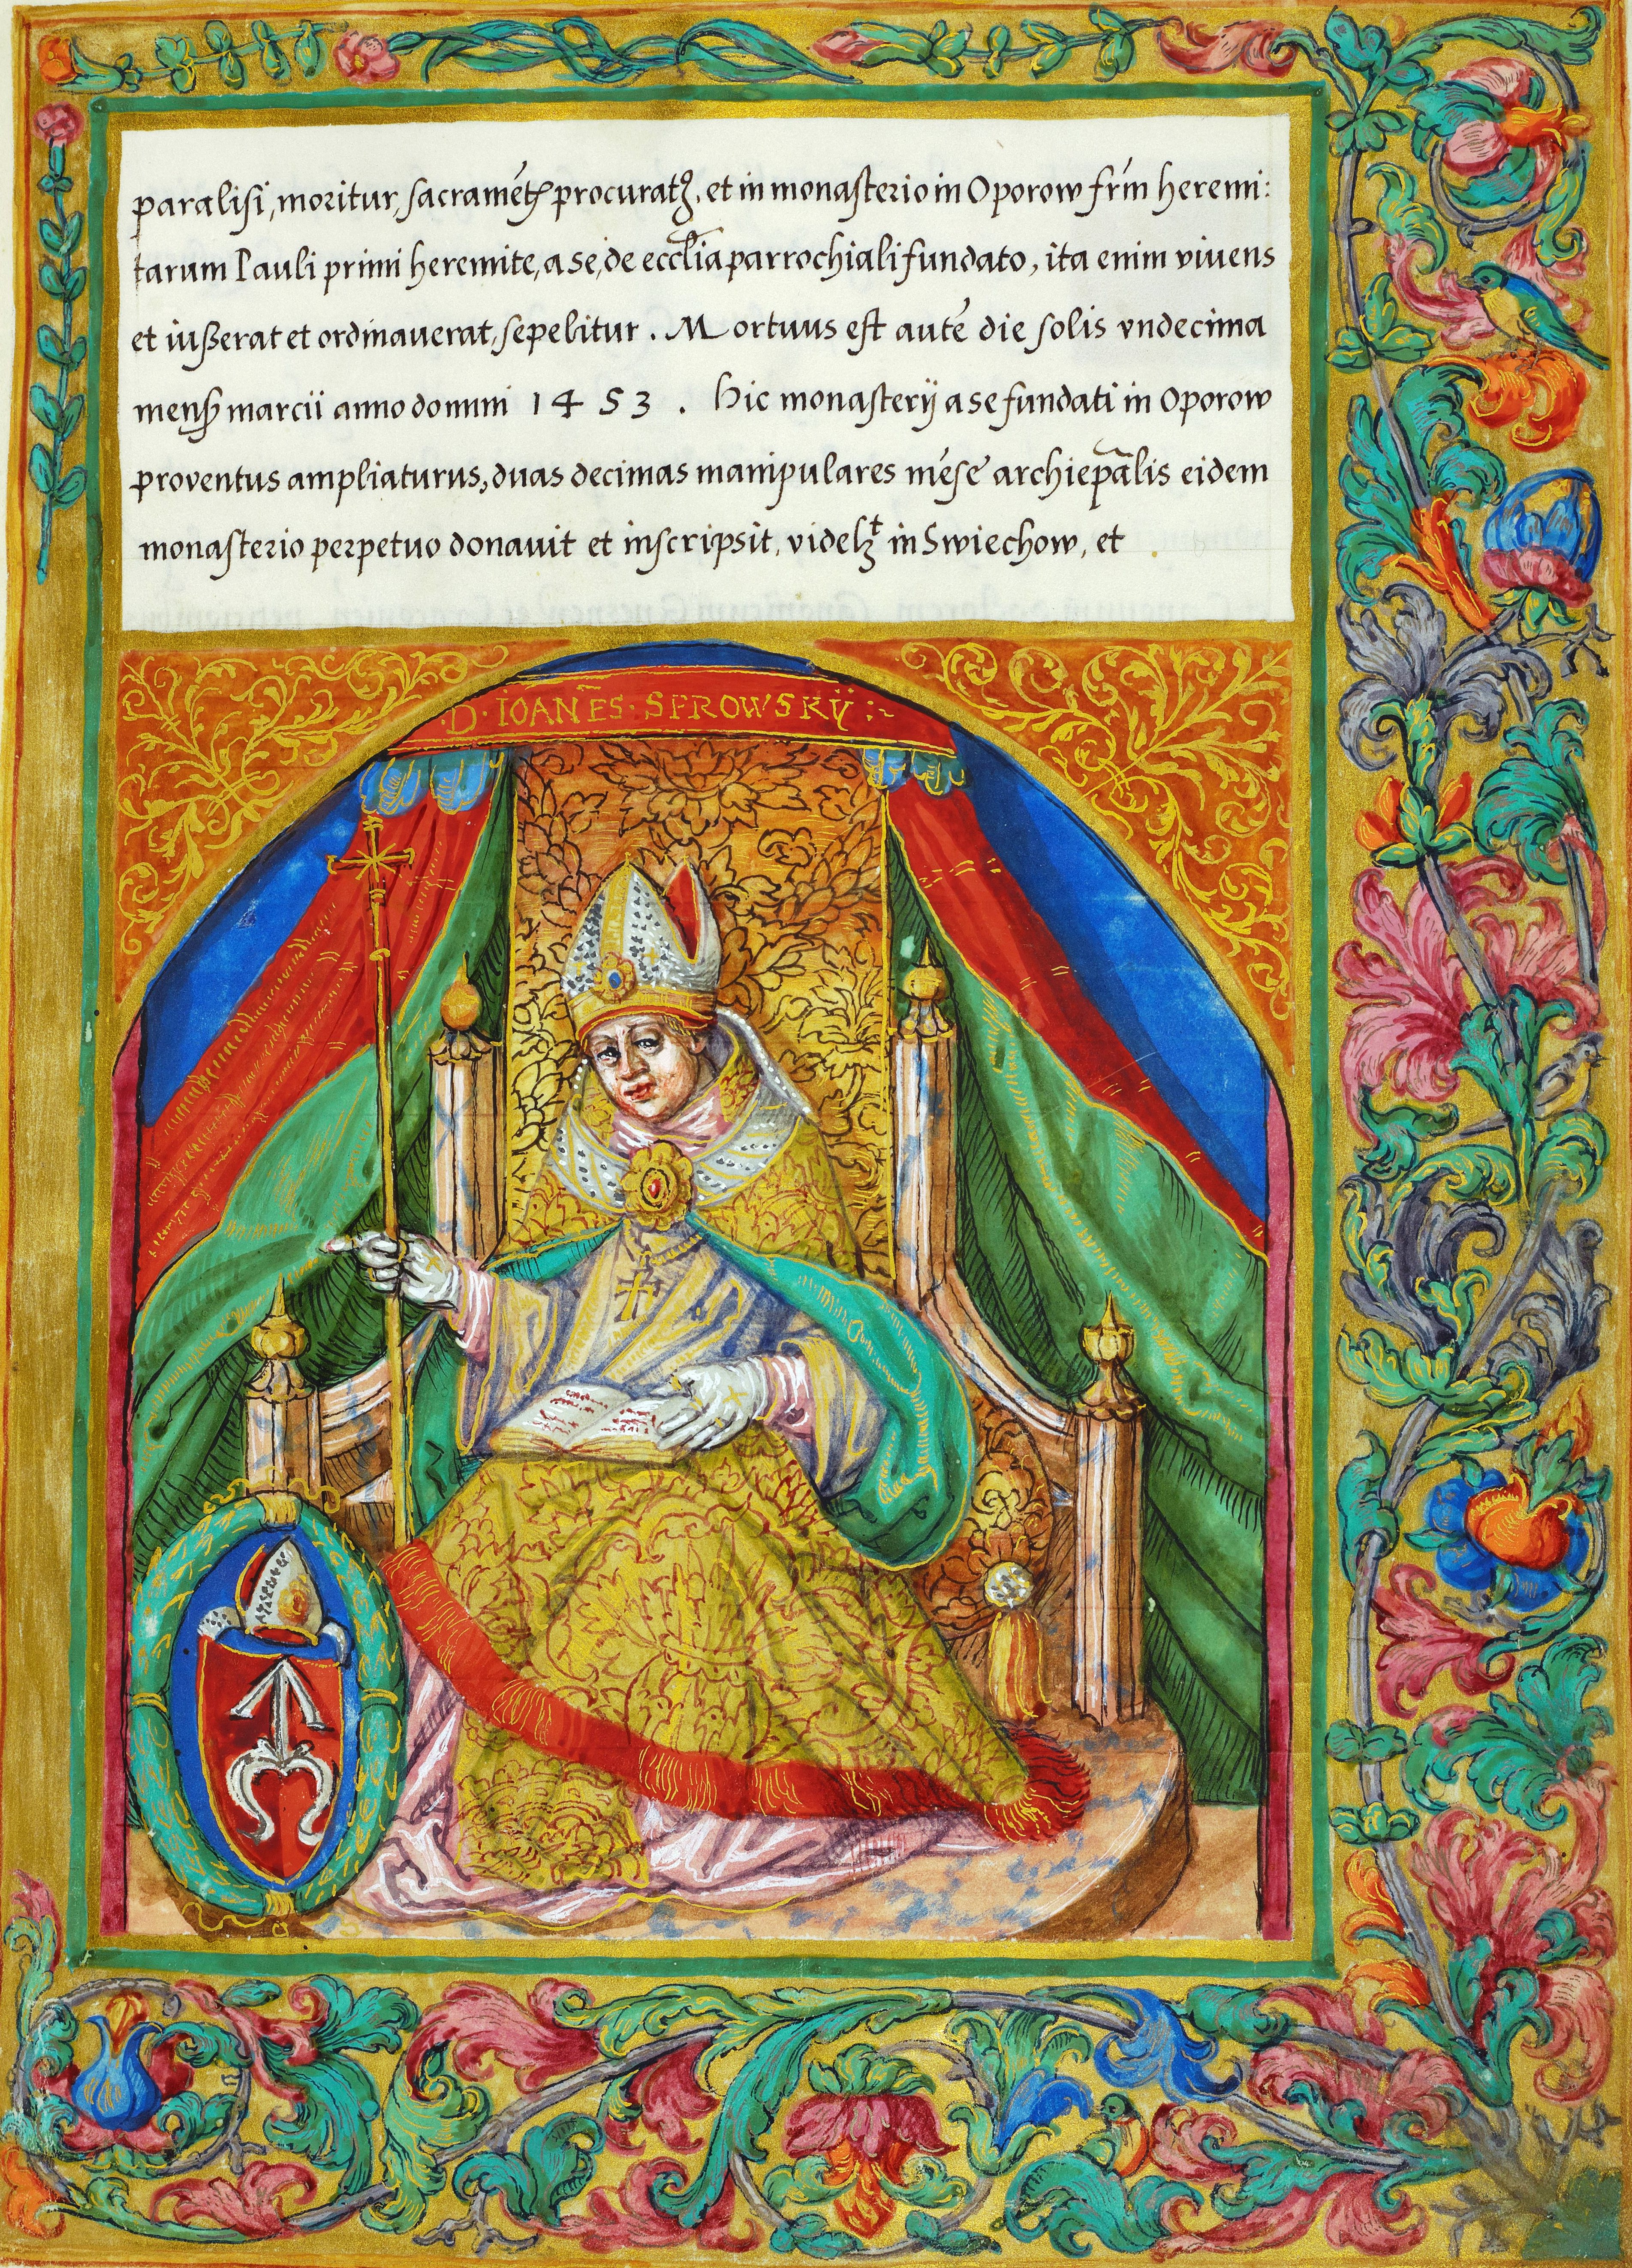 paralisi, moritur, sacramẽtꝭ procuratꝰ, et in monasterio in Oporow frm̃ heremi:
tarum Pauli primi heremite, a se, de eccl̃ia parrochiali fundato, ita enim viuens
et iusserat et ordinauerat, sepelitur. Mortuus est autẽ die solis vndecima
mensꝭ marcii anno domini 1453. Hic monasterij a se fundati in Oporow
proventus ampliaturus, duas decimas manipulares mẽse archiepãlis eidem
monasterio perpetuo donauit et inscripsit, videlꝫt in Swiechow, et
D · IOANÑES · SPROWSKŸ :~